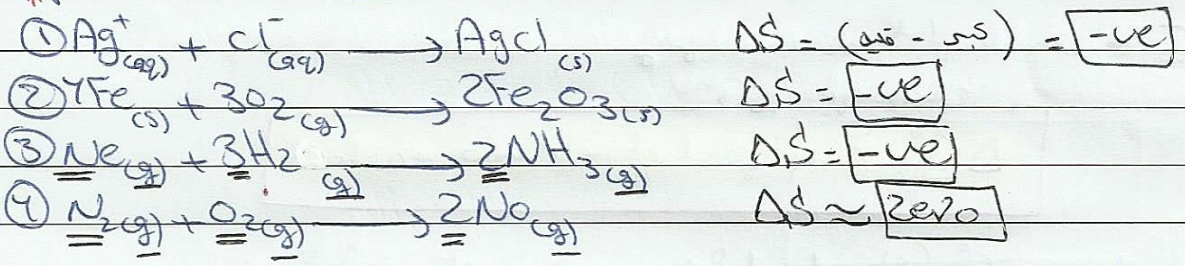 ① Ag⁺(aq) + Cl⁻(aq) → AgCl(s) ΔS = ( - ) = -ve
② 4Fe(s) + 3O2(g) → 2Fe2O3(s) ΔS = -ve
③ Ne(g) + 3H2(g) → 2NH3(g) ΔS = -ve
④ N2(g) + O2(g) → 2No(g) ΔS ≈ Zero